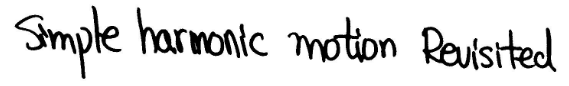 Simple harmonic motion Revisited